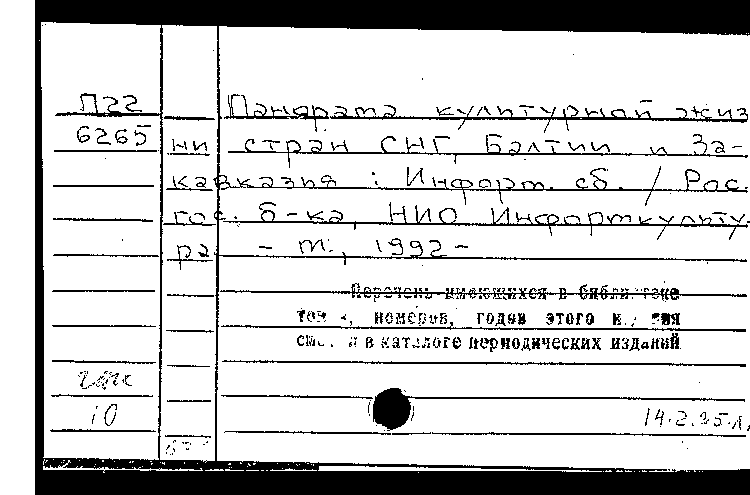 П22 Панорама культурной жиз
6265 ни стран СНГ, Балтии и За-
кавказия : Информ. сб. / Рос.
гос. б-ка, НИО Информкульту-
ра. - М., 1992 -
Перечень имеющихся в библиотеке
томов, номеров, годов этого издания
смотри в каталоге периодических изданий
10
14.2.95 л.